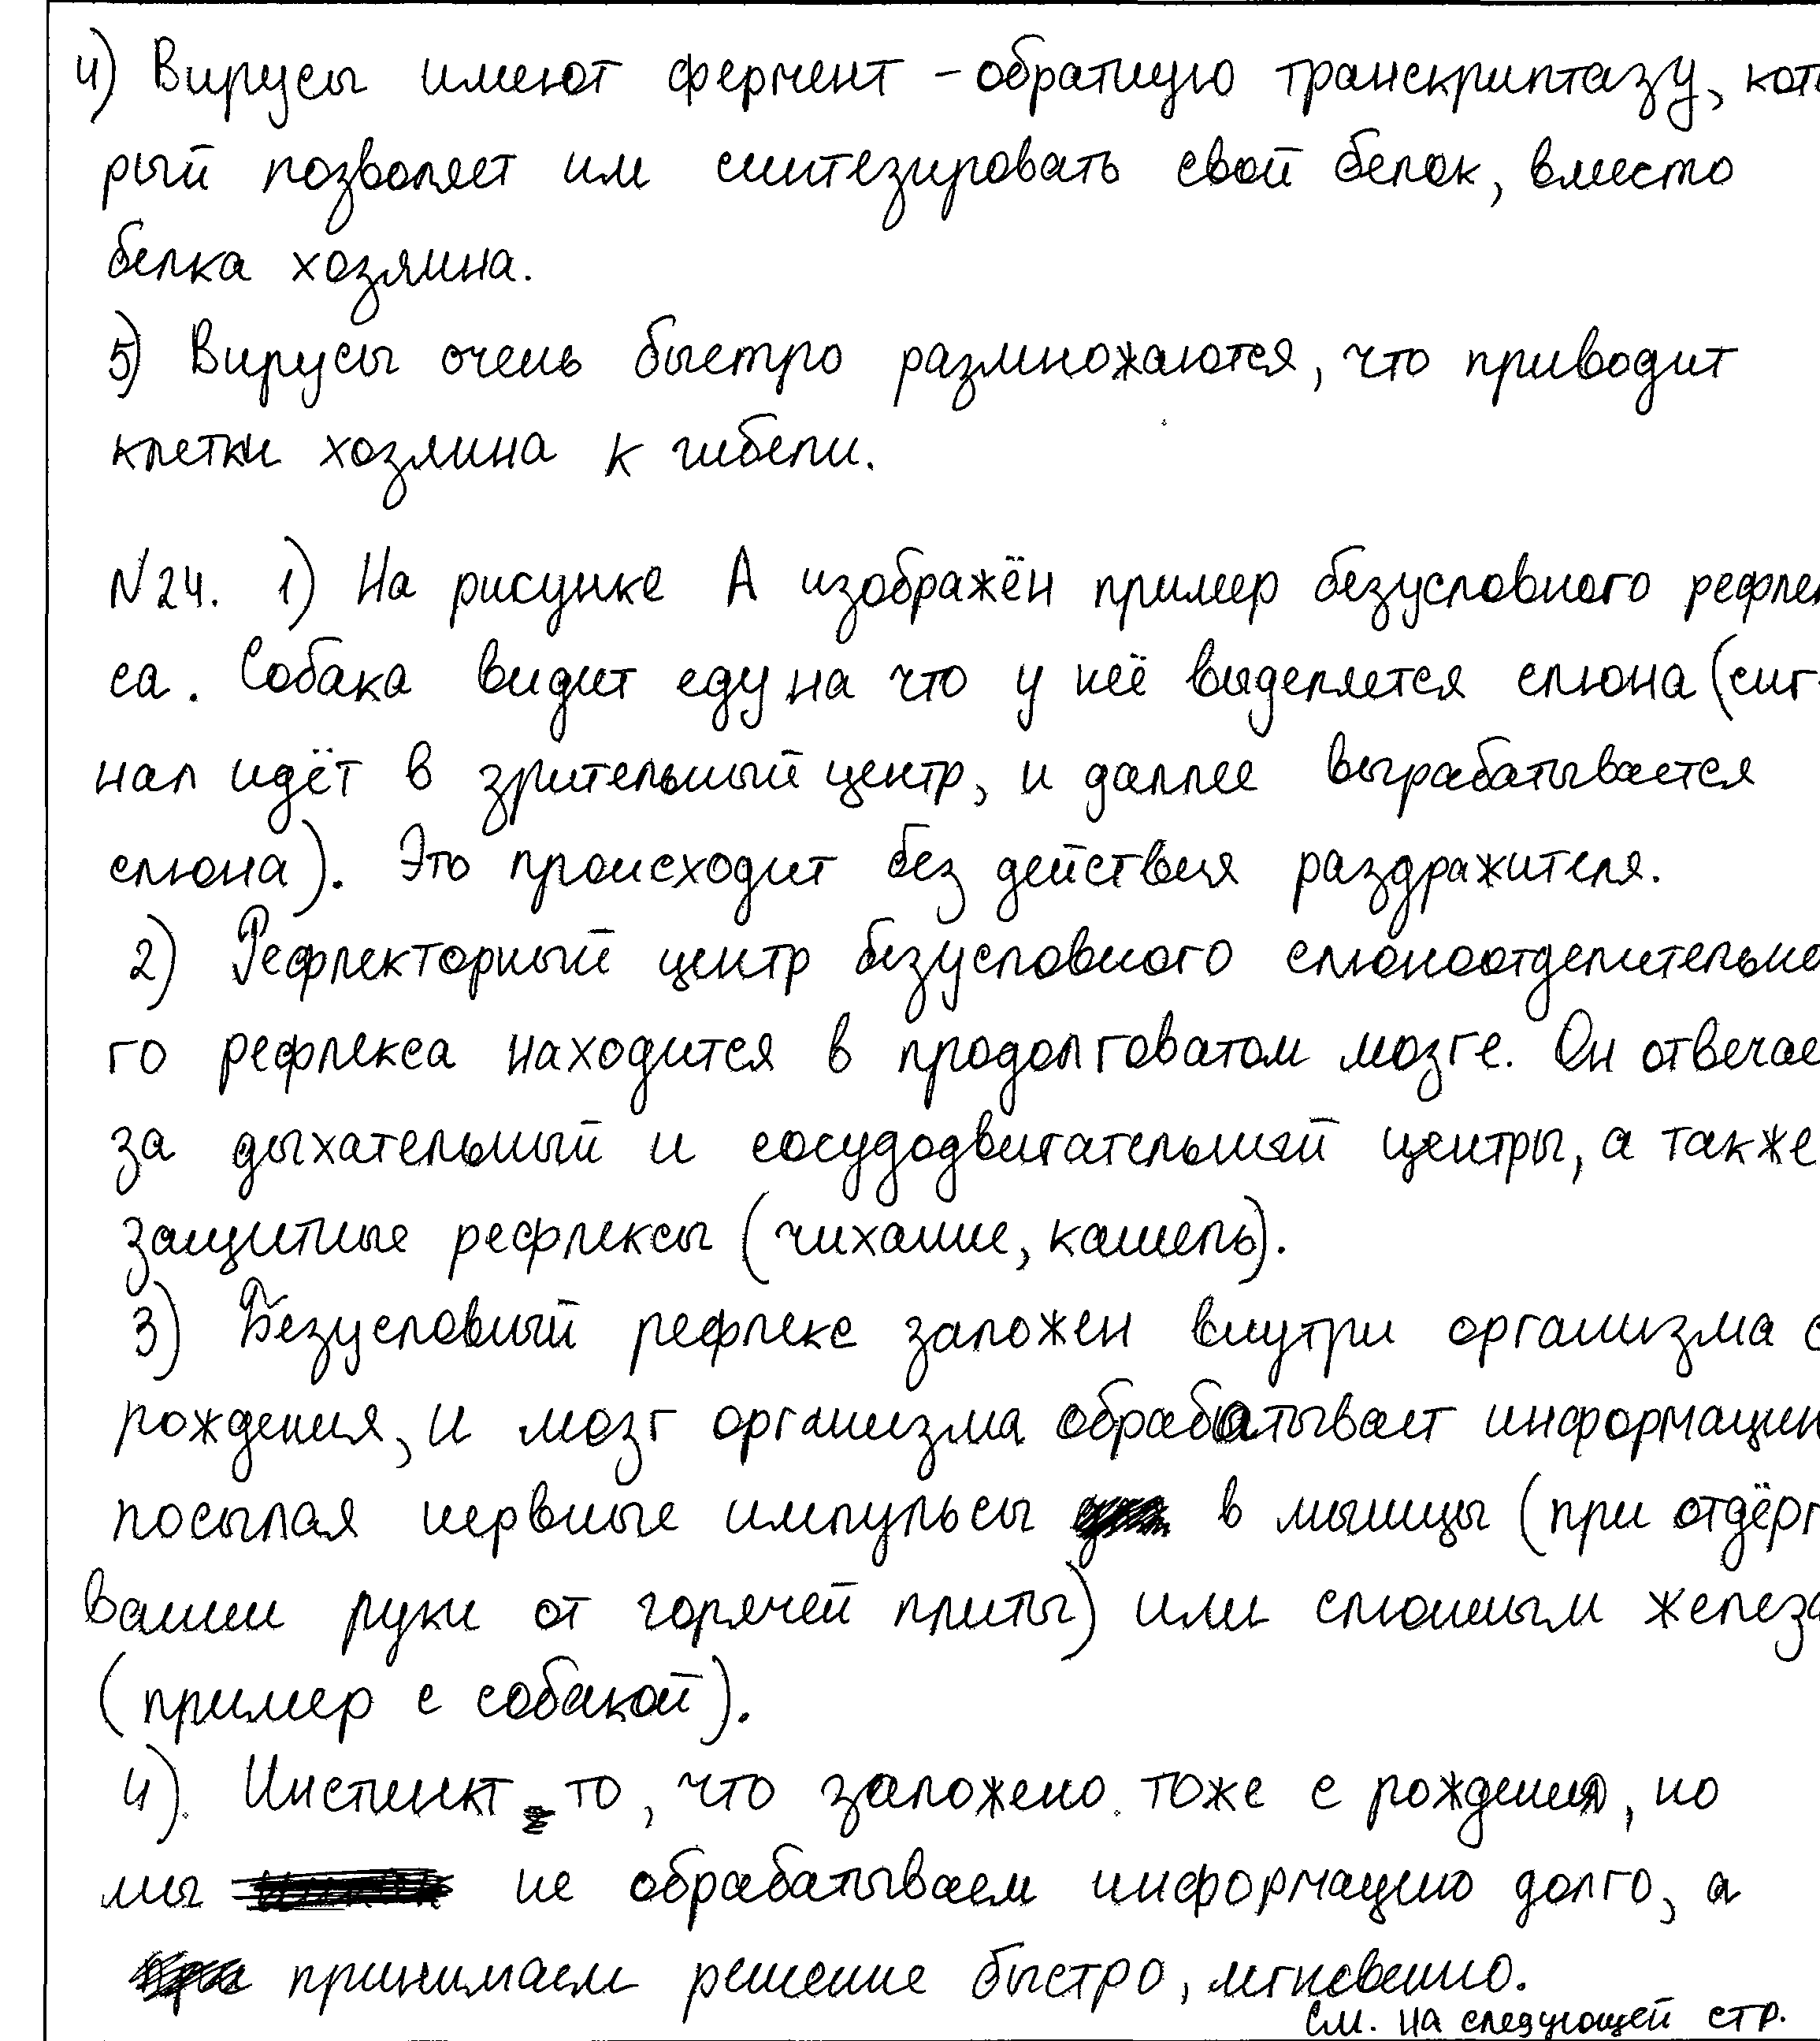 4) Вирусы имеют фермент - обратную транскриптазу, кото
рый позволяет им синтезировать свой белок, вместо
белка хозяина.
5) Вирусы очень быстро размножаются, что приводит
клетки хозяина к гибели.
N24. 1) На рисунке А изображён пример безусловного рефлек
са. Собака видит еду, на что у неё выделяется слюна (сиг-
нал идёт в зрительный центр, и даллее вырабатывается
слюна). Это происходит без действия раздражителя.
2) Рефлекторный центр безусловного слюноотделительно
го рефлекса находится в продолговатом мозге. Он отвечае
за дыхательный и сосудодвигательный центры, а также
защитные рефлексы (чихание, кашель).
3) Безусловный рефлекс заложен внутри организма с
рождения, и мозг организма обрабатывает информацию
посылая нервные импульсы в мышцы (при отдёрг
вании руки от горячей плиты) или слюнным железа
(пример с собакой).
4). Инстинкт - то, что заложено тоже с рождения, но
мы не обрабатываем информацию долго, а
принимаем решение быстро, мгновенно.
См. на следующей стр.